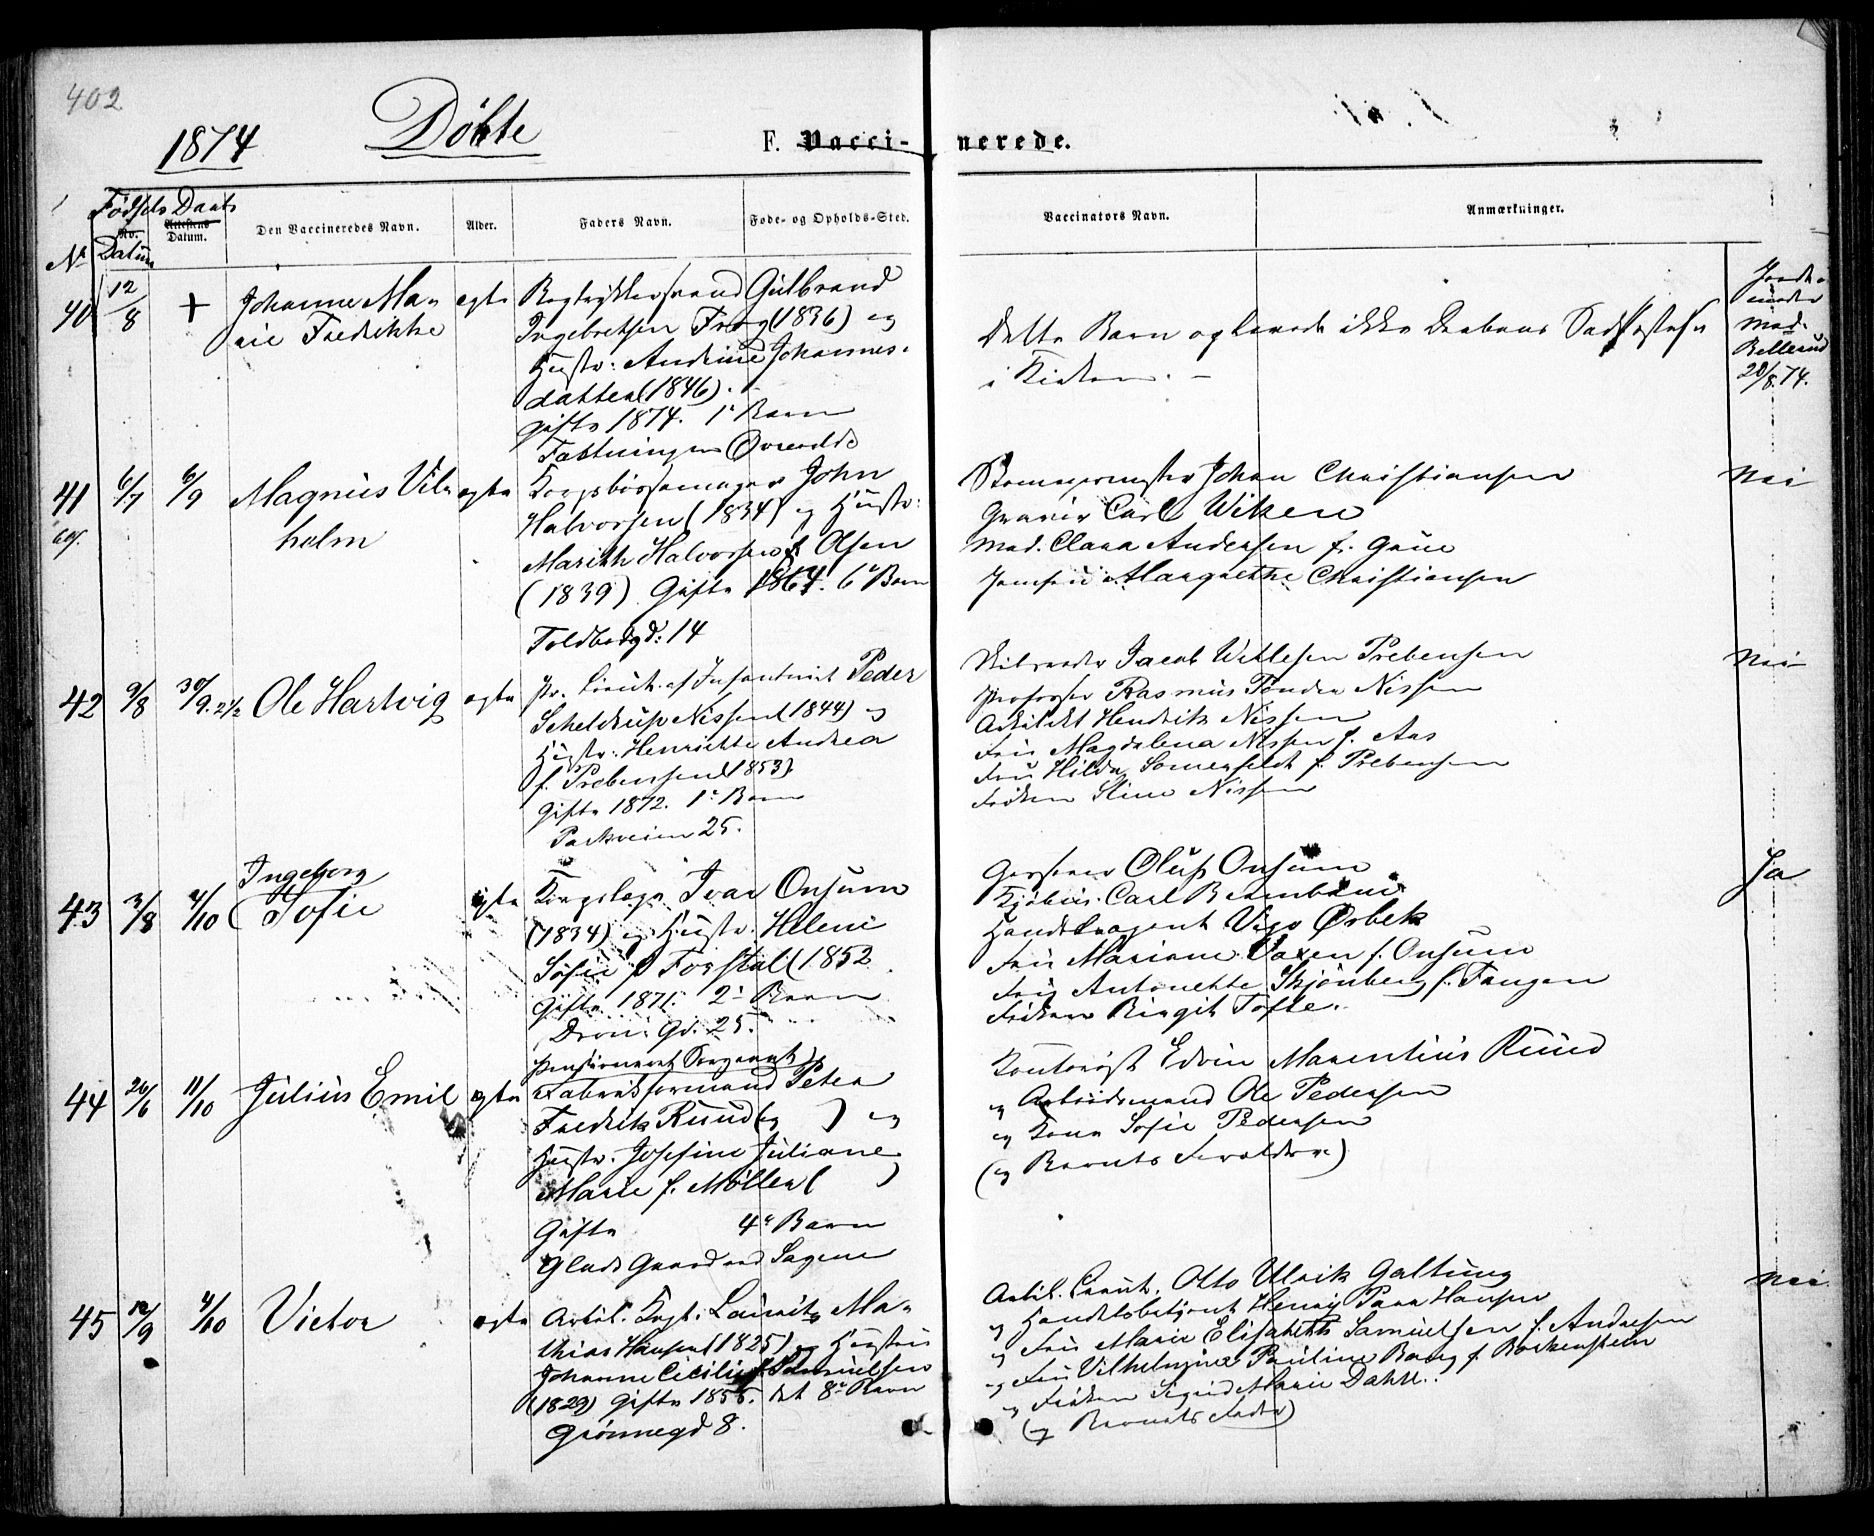 402
1874 Döbte F. Vacci- nerede.
Fødsels Daabs
No. Attestens Datum. Den Vaccineredes Navn. Alder. Faders Navn. Føde- og Opholds-Sted. Vaccinators Navn. Anmærkninger.
Nr Datum
40 12/8 + Johanne Ma-
rie Fredrikke
ægte
Bogtrykkersvend Gulbrand
Ingebretsen Frog (1836) og
Hustr: Andrine Johannes-
datter (1846).
gifte 1874. 1e Barn
Fæstningen
Dette Barn oplevede ikke Daabens
i Kirken. -
Jorde-
moder
Mad.
Bellerud
28/8.74.
41 6/7 6/9 Magnus Vil-
helm
ægte
John
Halvorsen (1834) og Hustr:
Marith Halvorsen f. Olsen
(1839) Gifte 1864. 6e Barn
Toldbodgd: 14
Johan Christiansen
Gravør Carl Wiken
Mad. Clara Andersen f. Grue
Jomfru Margrethe Christiansen
Nei
42 9/8 30/9. 2 1/2 Ole Hartvig ægte
Pr. Lieut. af Infanteriet Peder
Scheldrup Nissen (1844) og
Hustr: Henriette Andrea
f. Prebensen (1853).
Gifte 1872. 1e Barn
Parkveien 25.
Skibsreder Jacob Wetlesen Prebensen
Professor Rasmus Tønder Nissen
Arkitekt Hendrik Nissen
Fru Magdalena Nissen f. Aas
Fru Hilda Somerfeldt f. Prebensen
Frøken Stine Nissen
Nei
43 3/8 4/10 Ingeborg
Sofie
ægte
Korpslæge Ivar Onsum
(1834) og Hustr. Helene
Sofie f Forstal (1852
Gifte 1871. 2e Barn
Dron: Gd. 25.
Oluf Onsum
Carl
Handelsagent Vigo Ørbek
Fru Mariane Vaxen f. Onsum
Fru Antonette Skjönberg f. Tangen
Frøken Birgit Tofte.
Ja
44 26/6 11/10 Julius Emil ægte
pensioneret Sergeant
Fabrikformand Peter
Fredrik Ruud ( ) og
Hustr. Josefine Juliane
Marie f. Möller ( )
Gifte 4e Barn
Glads Gaard ved Sagene
Kontorist Edvin Marentius Ruud
og Arbeidsmand Ole Pedersen
og Kone Sofie Pedersen
(og Barnets Forældre)
45 12/9 4/10 Victor ægte
Artil. Kapt. Lauritz Ma-
thias Hansen (1825) og Hustru
Johanne Cecilie f. Samuelsen
(1829) gifte 1855. det 8e Barn
Grönnegd 8.
Artil. Lieut. Otto Ulrik Galtung
og Handelsbetjent Henry Hansen
og Fru Marie Elisabeth Samuelsen f. Andresen
og Fru Vilhelmine Pauline Bang f. Borkenstein
og Frøken Sigrid Marie Dahll.
(og Barnets Fader)
Nei